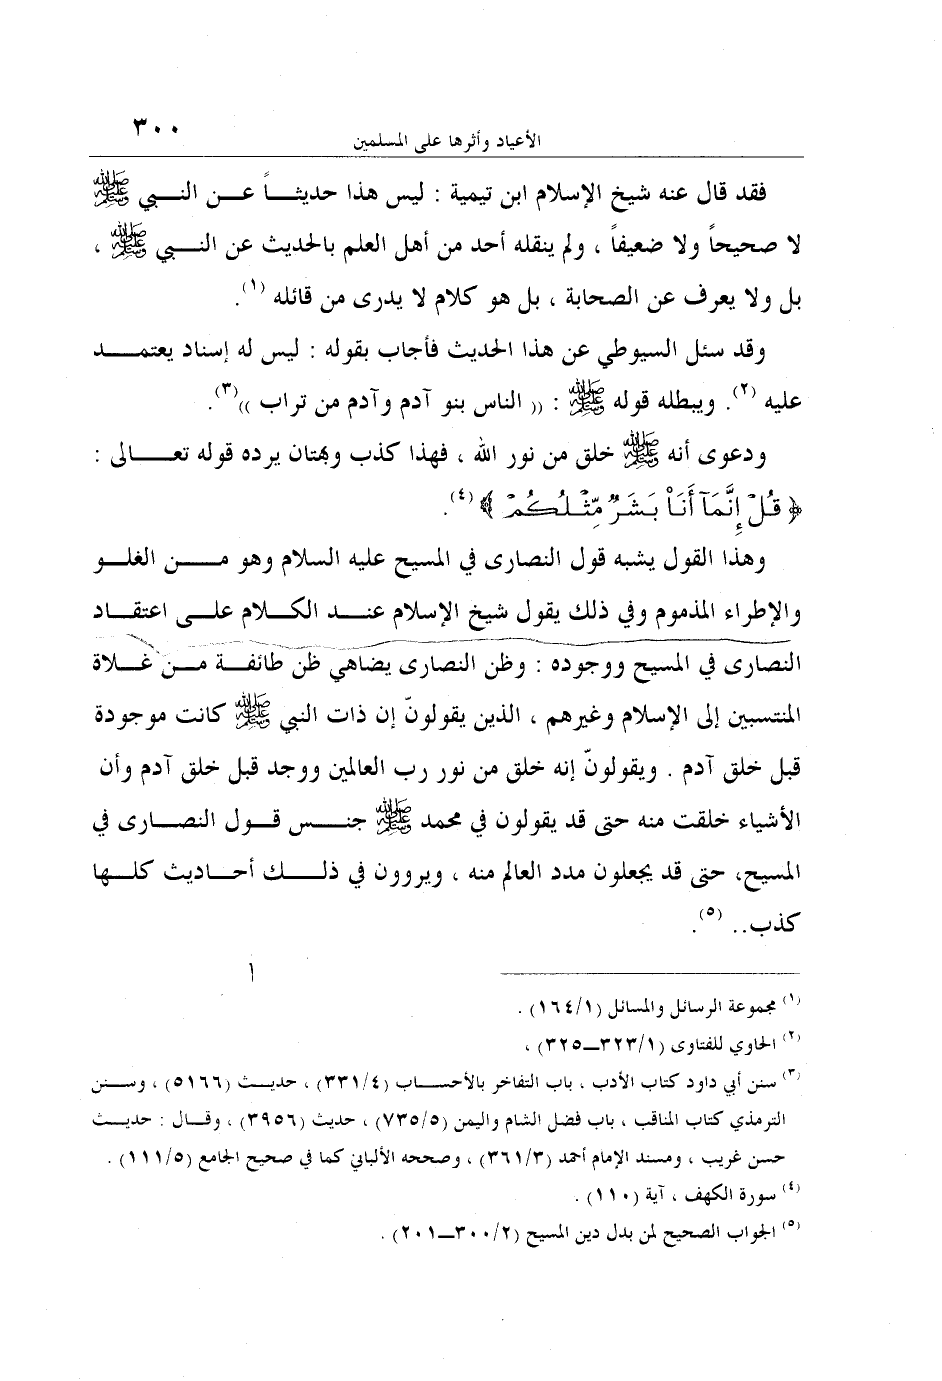 ٣٠٠
الأعياد وأثرها على المسلمين
فقد قال عنه شيخ الإسلام ابن تيمية : ليس هذا حديثاً عن النبي ﷺ
لا صحيحاً ولا ضعيفاً ، ولم ينقله أحد من أهل العلم بالحديث عن النبي ﷺ ،
بل ولا يعرف عن الصحابة ، بل هو كلام لا يدرى من قائله (١).
وقد سئل السيوطي عن هذا الحديث فأجاب بقوله : ليس له إسناد يعتمد
عليه (٢). ويبطله قوله ﷺ : (( الناس بنو آدم وآدم من تراب ))(٣).
ودعوى أنه ﷺ خلق من نور الله ، فهذا كذب وبهتان يرده قوله تعالى :
﴿ قُلْ إِنَّمَآ أَنَا۠ بَشَرٌ مِّثْلُكُمْ ﴾(٤).
وهذا القول يشبه قول النصارى في المسيح عليه السلام وهو من الغلو
والإطراء المذموم وفي ذلك يقول شيخ الإسلام عند الكلام على اعتقاد
النصارى في المسيح ووجوده : وظن النصارى يضاهي ظن طائفة من غلاة
المنتسبين إلى الإسلام وغيرهم ، الذين يقولون إن ذات النبي ﷺ كانت موجودة
قبل خلق آدم . ويقولون إنه خلق من نور رب العالمين ووجد قبل خلق آدم وأن
الأشياء خلقت منه حتى قد يقولون في محمد ﷺ جنس قول النصارى في
المسيح، حتى قد يجعلون مدد العالم منه ، ويروون في ذلك أحاديث كلها
كذب.. (٥).
(١) مجموعة الرسائل والمسائل (١٦٤/١) .
(٢) الحاوي للفتاوى (٣٢٣/١ــ٣٢٥) ،
(٣) سنن أبي داود كتاب الأدب ، باب التفاخر بالأحساب (٣٣١/٤) ، حديث (٥١٦٦) ، وسنن
الترمذي كتاب المناقب ، باب فضل الشام واليمن (٧٣٥/٥) ، حديث (٣٩٥٦) ، وقال : حديث
حسن غريب ، ومسند الإمام أحمد (٣٦١/٣) ، وصححه الألباني كما في صحيح الجامع (١١١/٥) .
(٤) سورة الكهف ، آية (١١٠) .
(٥) الجواب الصحيح لمن بدل دين المسيح (٣٠٠/٢ــ٢٠١) .